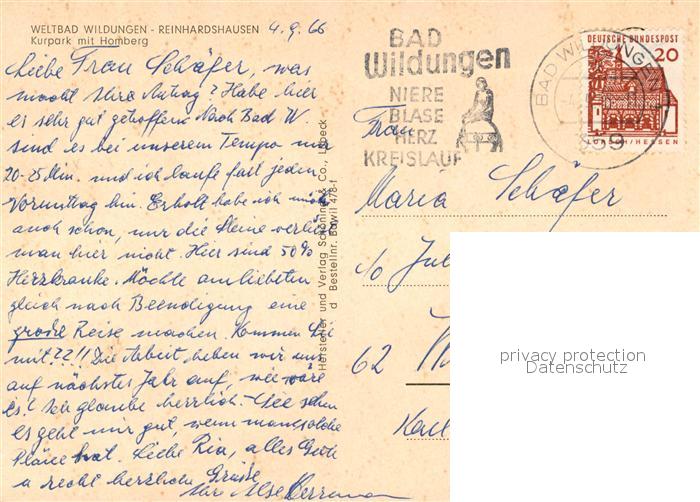 WELTBAD WILDUNGEN - REINHARDSHAUSEN 4.9.66
Kurpark mit Homberg
Liebe Frau Schäfer, was
macht Ihre Antrag? Habe hier
es sehr gut getroffen. Nach Bad W.
sind es bei unserem Tempo nur
20-25 Min. und ich laufe fast jeden
Vormittag hin. Erholt habe ich mich
auch schon, nur die Steine verliert
man hier nicht. Hier sind 50%
Herzkranke. Möchte am liebsten
gleich nach Beendigung eine
große Reise machen. Kommen Sie
mit??!! Die Arbeit heben wir uns
auf nächstes Jahr auf, wie wäre
es! Ich glaube herrlich. - Sie sehen
es geht mir gut, wenn man solche
Pläne hat. Liebe Ria, alles Gute
u recht herzliche Grüsse
Ihre Ilse Herrmann
Hersteller und Verlag Schöning & Co., Lübeck
d Bestellnr. Bawil 478-f
BAD
Wildungen
NIERE
BLASE
HERZ
KREISLAUF
BAD WILDUNGEN
359
DEUTSCHE BUNDESPOST
20
LORSCH/HESSEN
Frau
Maria Schäfer
c/o Jul
62
privacy protection
Datenschutz